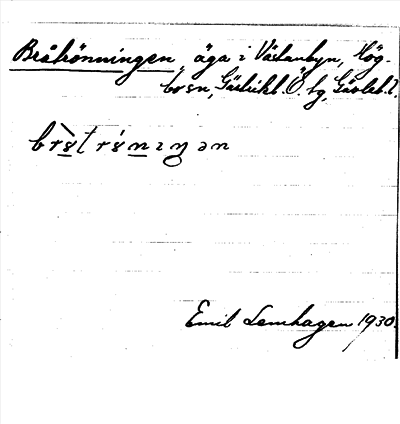 Bråkönningen, äga i Västanbyn, Hög-
bo sn, Gästrikl. Ö. tg, Gävleb. l.
Emil Lemhagen 1930.